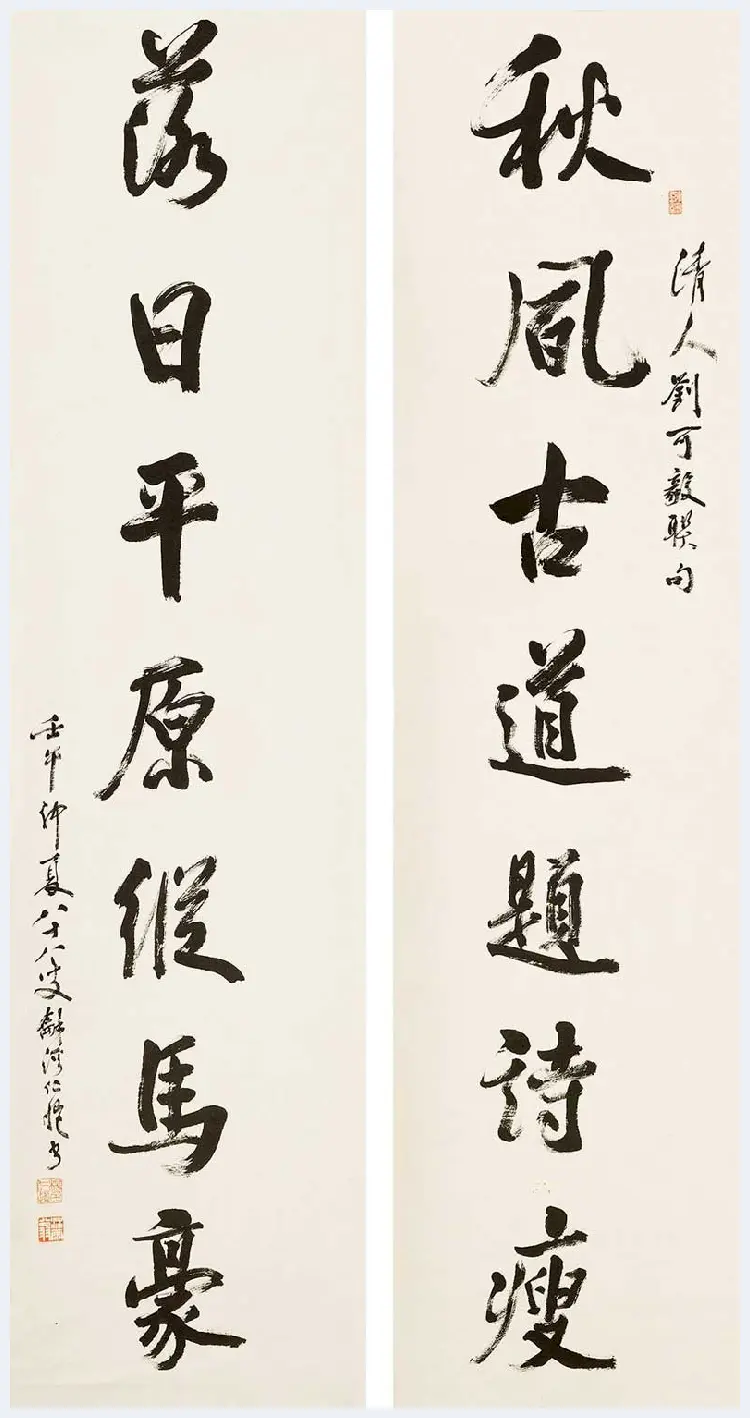 秋風古道題詩瘦
清人劉可毅聯句
落日平原縱馬豪
壬午仲夏八十八叟龢溪仁愷書